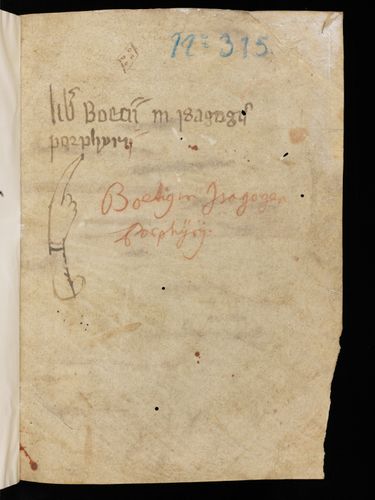 Nº 315.
lib Boecii in isagogis
porphyrii
Boetius in Isagogen
Porphÿrÿ.